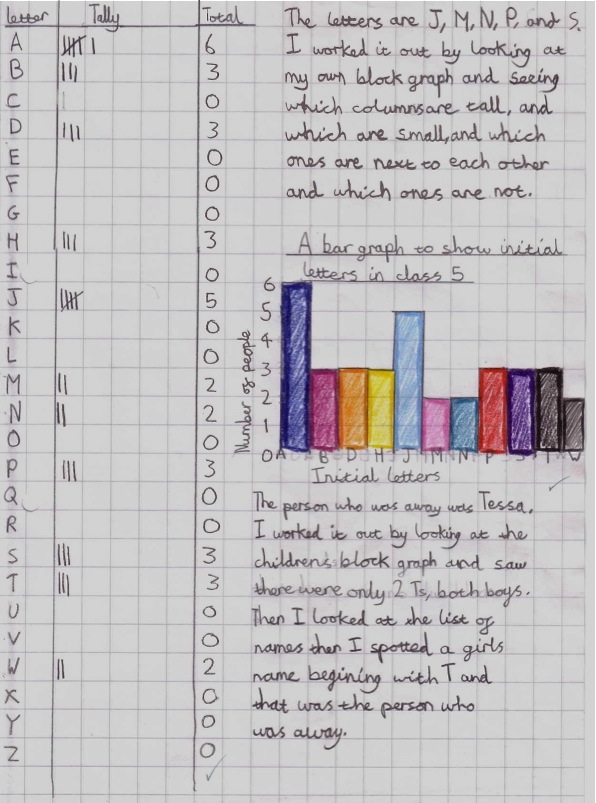 letter Tally Total
A 6
B 3
C 0
D 3
E 0
F 0
G 0
H 3
I 0
J 5
K 0
L 0
M 2
N 2
O 0
P 3
Q 0
R 0
S 3
T 3
U 0
V 0
W 2
X 0
Y 0
Z 0
The letters are J, M, N, P, and S.
I worked it out by looking at
my own block graph and seeing
which columns are tall, and
which are small, and which
ones are next to each other
and which ones are not.
A bar graph to show initial
letters in class 5
Number of people
6
5
4
3
2
1
0
A B D H J M N P S T W
Initial letters
The person who was away was Tessa.
I worked it out by looking at the
childrens block graph and saw
there were only 2 Ts, both boys.
Then I looked at the list of
names then I spotted a girls
name begining with T and
that was the person who
was away.